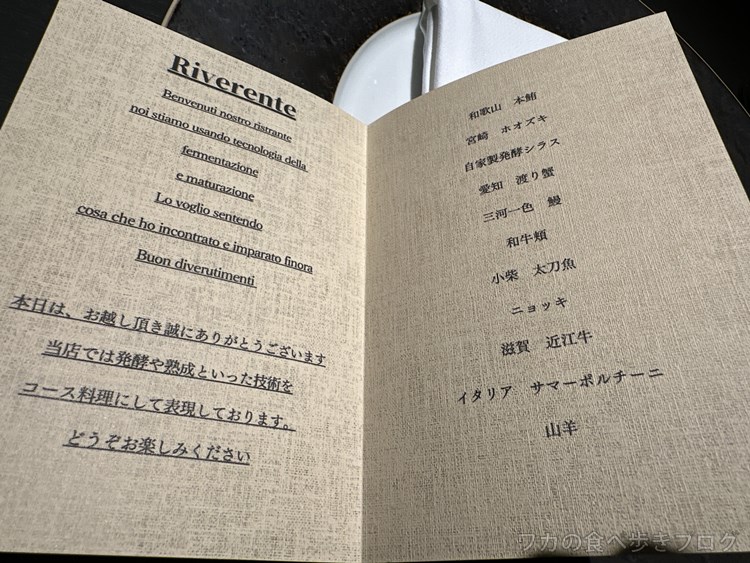 Riverente
Benvenuti nostro ristrante
noi stiamo usando tecnologia della
fermentazione
e maturazione
Lo voglio sentendo
cosa che ho incontrato e imparato finora
Buon diverutimenti
本日は、お越し頂き誠にありがとうございます
当店では発酵や熟成といった技術を
コース料理にして表現しております。
どうぞお楽しみください
和歌山 本鮪
宮崎 ホオズキ
自家製発酵シラス
愛知 渡り蟹
三河一色 鰻
和牛頬
小柴 太刀魚
ニョッキ
滋賀 近江牛
イタリア サマーポルチーニ
山羊
フカの食べ歩きブログ